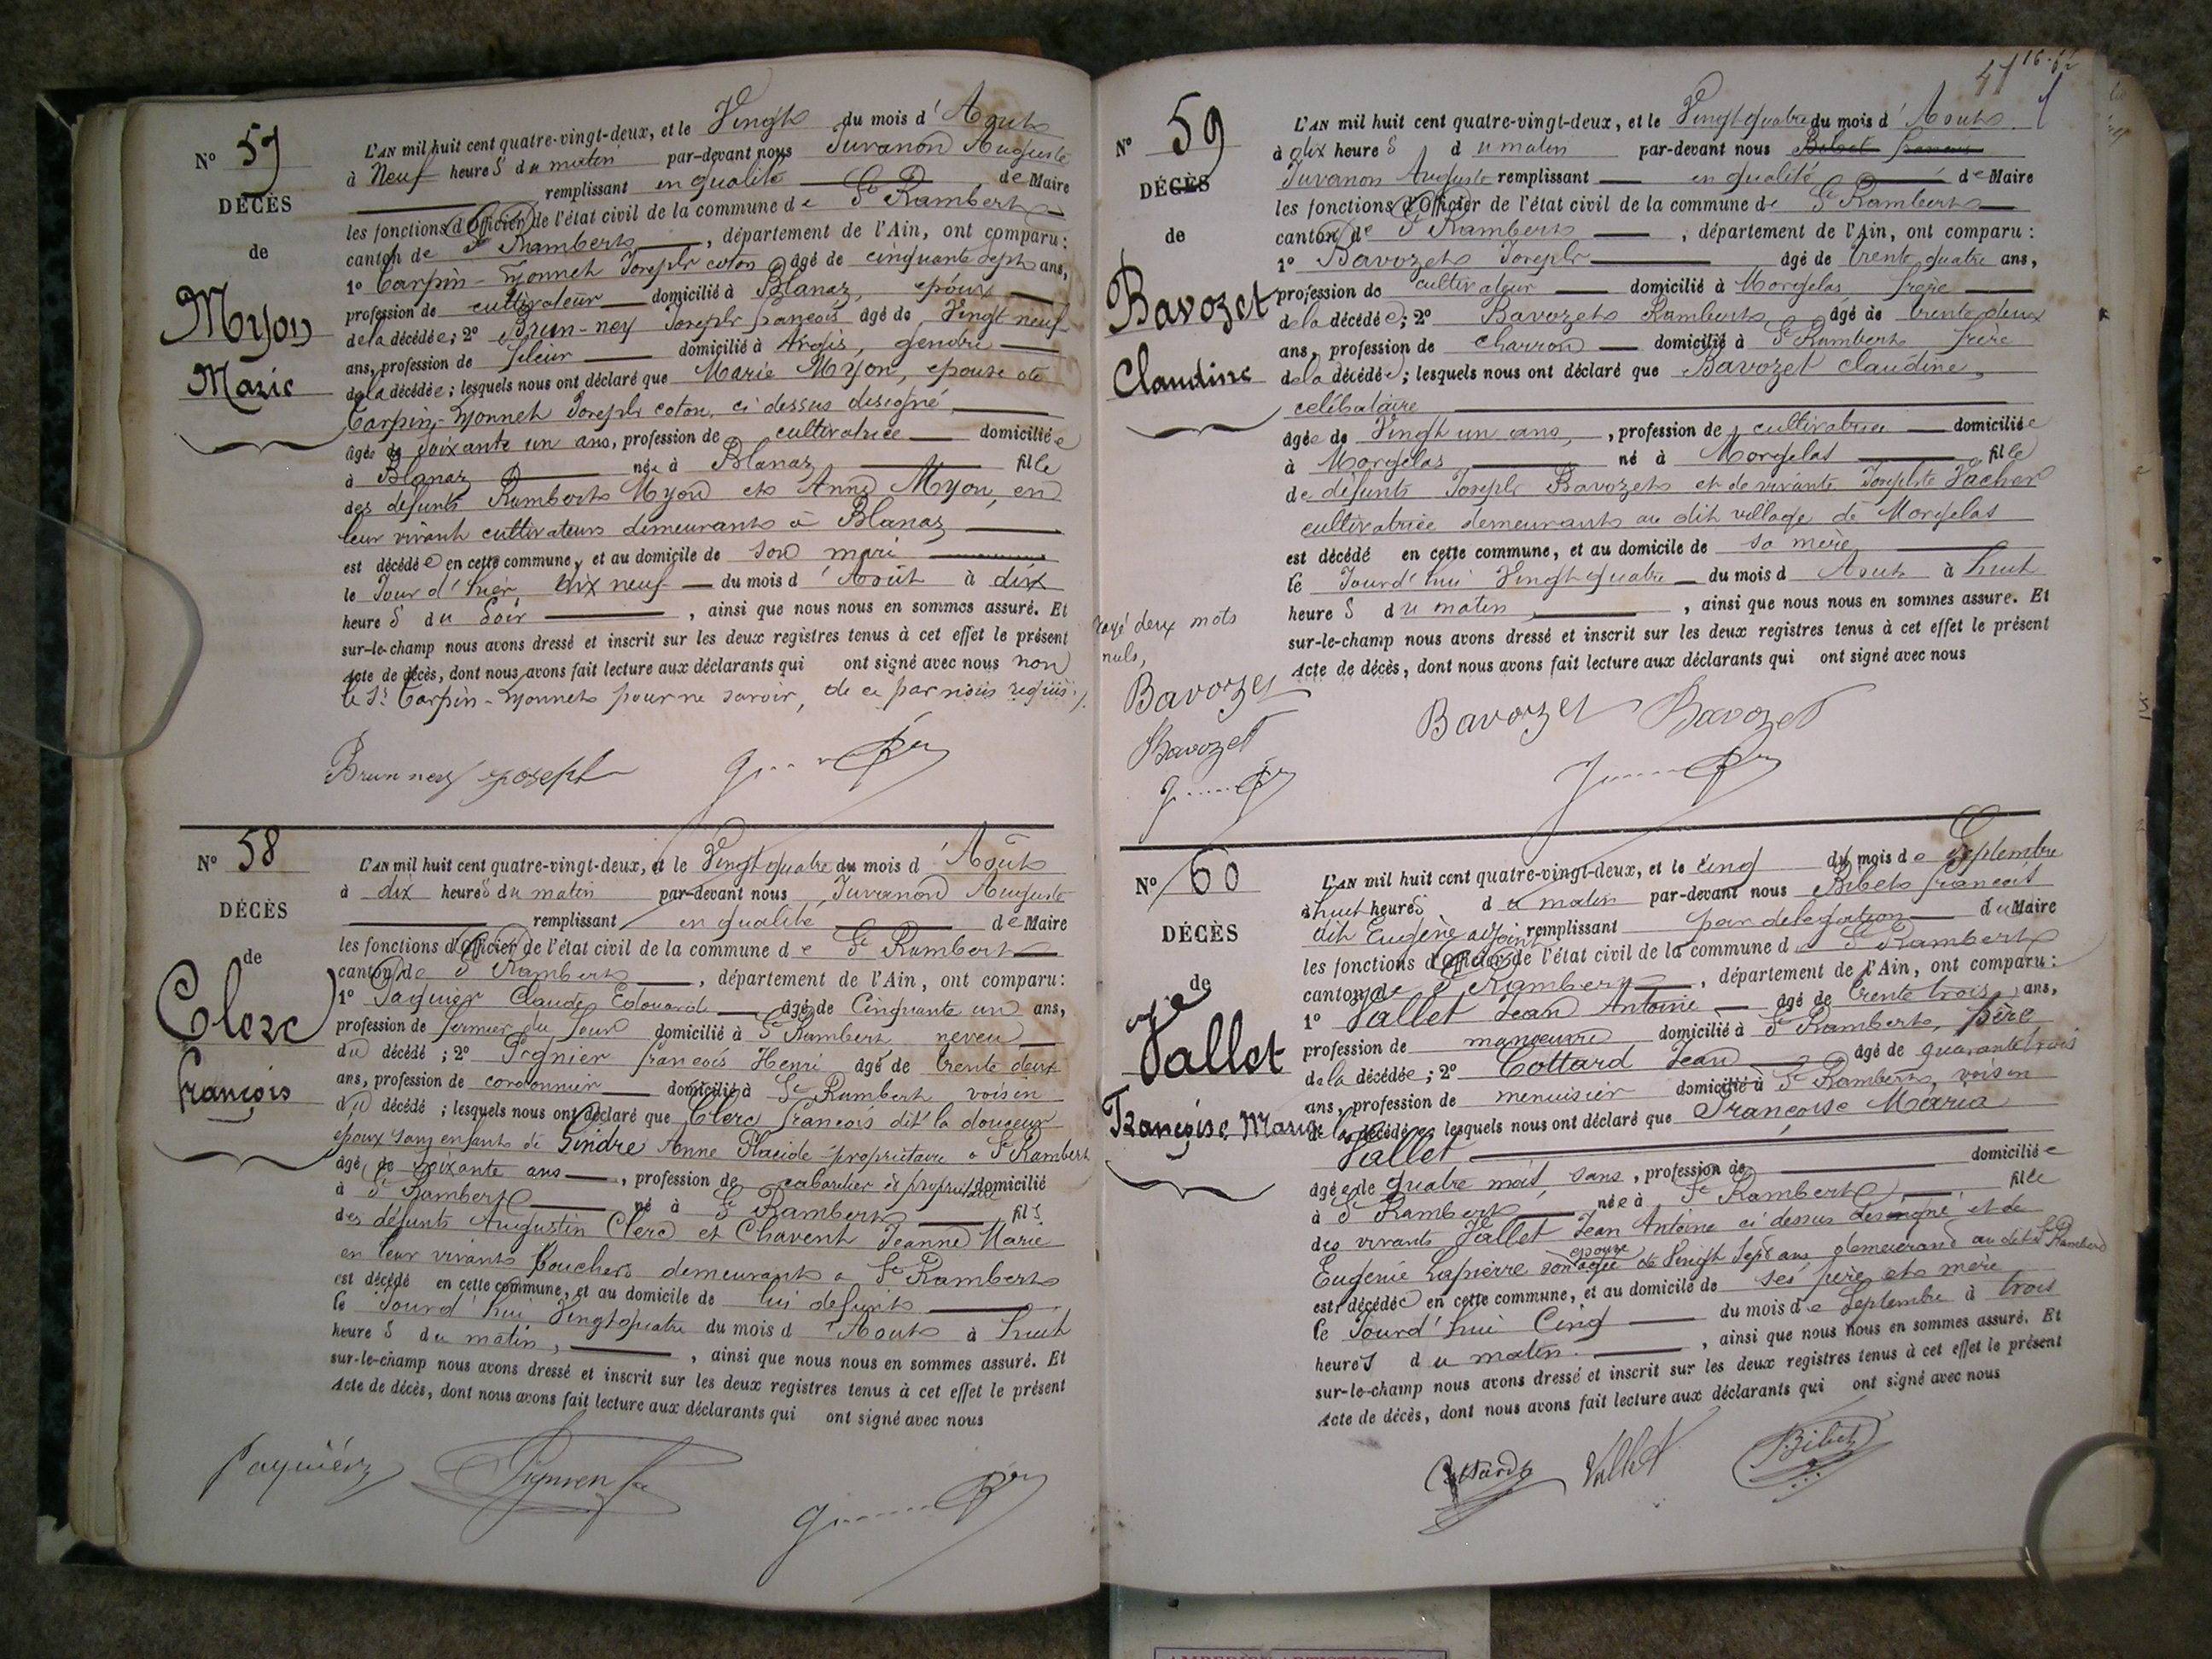 N° 57
DÉCÈS
de
Myon
Marie
L'AN mil huit cent quatre-vingt-deux, et le Vingt du mois d'Aout
à Neuf heures du matin par-devant nous Juvanon Auguste
remplissant en qualité de Maire
les fonctions d'Officier de l'état civil de la commune de St Rambert
canton de St Rambert, département de l'Ain, ont comparu :
1° Carpin-Yonnet Joseph coton âgé de cinquante sept ans,
profession de cultivateur domicilié à Blanaz, époux
de la décédée ; 2° Brun-ney Joseph françois âgé de Vingt neuf
ans, profession de fileur domicilié à Argis, gendre
de la décédée ; lesquels nous ont déclaré que Marie Myon, epouse de
Carpin-Yonnet Joseph coton, ci dessus désigné
âgée de soixante un ans, profession de cultivatrice domiciliée
à Blanaz née à Blanaz fille
des défunts Rambert Myon et Anne Myon, en
leur vivant cultivateurs demeurants à Blanaz
est décédée en cette commune, et au domicile de son mari
le Jour d'hier, dix neuf du mois d'Août à dix
heures du Soir, ainsi que nous nous en sommes assuré. Et
sur-le-champ nous avons dressé et inscrit sur les deux registres tenus à cet effet le présent
Acte de décès, dont nous avons fait lecture aux déclarants qui ont signé avec nous non
le Sr Carpin-Yonnet pour ne savoir, de ce par nous requis.
Brun ney joseph
N° 58
DÉCÈS
de
Clerc
françois
L'AN mil huit cent quatre-vingt-deux, et le Vingt quatre du mois d'Août
à dix heures du matin par-devant nous Juvanon Auguste
remplissant en qualité de Maire
les fonctions d'Officier de l'état civil de la commune de St Rambert
canton de St Rambert, département de l'Ain, ont comparu :
1° Paquier Claude Edouard âgé de Cinquante un ans,
profession de fermier du four domicilié à St Rambert neveu
du décédé ; 2° françois Henri âgé de trente deux
ans, profession de cordonnier domicilié à St Rambert voisin
du décédé ; lesquels nous ont déclaré que Clerc françois dit la douceur
epoux sans enfants de Gindre Anne Placide propriétaire a St Rambert
âgé de soixante ans, profession de cabaretier et propriétaire domicilié
à St Rambert né à St Rambert fils
des défunts Augustin Clerc et Chavent Jeanne Marie
en leur vivants bouchers demeurants a St Rambert
est décédé en cette commune, et au domicile de lui defunt
le Jourd'hui Vingt quatre du mois d'Aout à huit
heures du matin, ainsi que nous nous en sommes assuré. Et
sur-le-champ nous avons dressé et inscrit sur les deux registres tenus à cet effet le présent
Acte de décès, dont nous avons fait lecture aux déclarants qui ont signé avec nous
47
N° 59
DÉCÈS
de
Bavozet
Claudine
rayé deux mots
nuls,
Bavozet
Bavozet
L'AN mil huit cent quatre-vingt-deux, et le Vingt quatre du mois d'Aout
à dix heures du matin par-devant nous Bibet francois
Juvanon Auguste remplissant en qualité de Maire
les fonctions d'Officier de l'état civil de la commune de St Rambert
canton de St Rambert, département de l'Ain, ont comparu :
1° Bavozet Joseph âgé de trente quatre ans,
profession de cultivateur domicilié à Morgelas frère
de la décédée ; 2° Bavozet Rambert âgé de trente deux
ans, profession de charron domicilié à St Rambert frère
de la décédée ; lesquels nous ont déclaré que Bavozet claudine,
celibataire
âgée de Vingt un ans, profession de cultivatrice domiciliée
à Morgelas né à Morgelas fille
de défunt Joseph Bavozet et de vivante Josephte Vacher
cultivatrice demeurant au dit village de Morgelas
est décédé en cette commune, et au domicile de sa mère
le Jourd'hui Vingt quatre du mois d Aout à huit
heures du matin, ainsi que nous nous en sommes assuré. Et
sur-le-champ nous avons dressé et inscrit sur les deux registres tenus à cet effet le présent
Acte de décès, dont nous avons fait lecture aux déclarants qui ont signé avec nous
Bavozet Bavozet
N° 60
DÉCÈS
de
Vallet
Françoise Maria
L'AN mil huit cent quatre-vingt-deux, et le cinq du mois de Septembre
à huit heures du matin par-devant nous Bibet francois
dit Eugène adjoint remplissant par délégation du Maire
les fonctions d'Officier de l'état civil de la commune de St Rambert
canton de St Rambert, département de l'Ain, ont comparu :
1° Vallet Jean Antoine âgé de trente trois ans,
profession de manœuvre domicilié à St Rambert, père
de la décédée ; 2° Cottard Jean âgé de quarante trois
ans, profession de menuisier domicilié à St Rambert, voisin
de la décédée lesquels nous ont déclaré que Françoise Maria
Vallet
âgée de quatre mois, sans, profession de domiciliée
à St Rambert née à St Rambert fille
des vivants Vallet Jean Antoine ci dessus designé et de
Eugénie Lapierre son epouse agée de Vingt sept ans, demeurant au dit St Rambert
est décédée en cette commune, et au domicile de ses père et mère
le Jourd'hui Cinq du mois de Septembre à trois
heures du matin, ainsi que nous nous en sommes assuré. Et
sur-le-champ nous avons dressé et inscrit sur les deux registres tenus à cet effet le présent
Acte de décès, dont nous avons fait lecture aux déclarants qui ont signé avec nous
Cottard Vallet Bibet